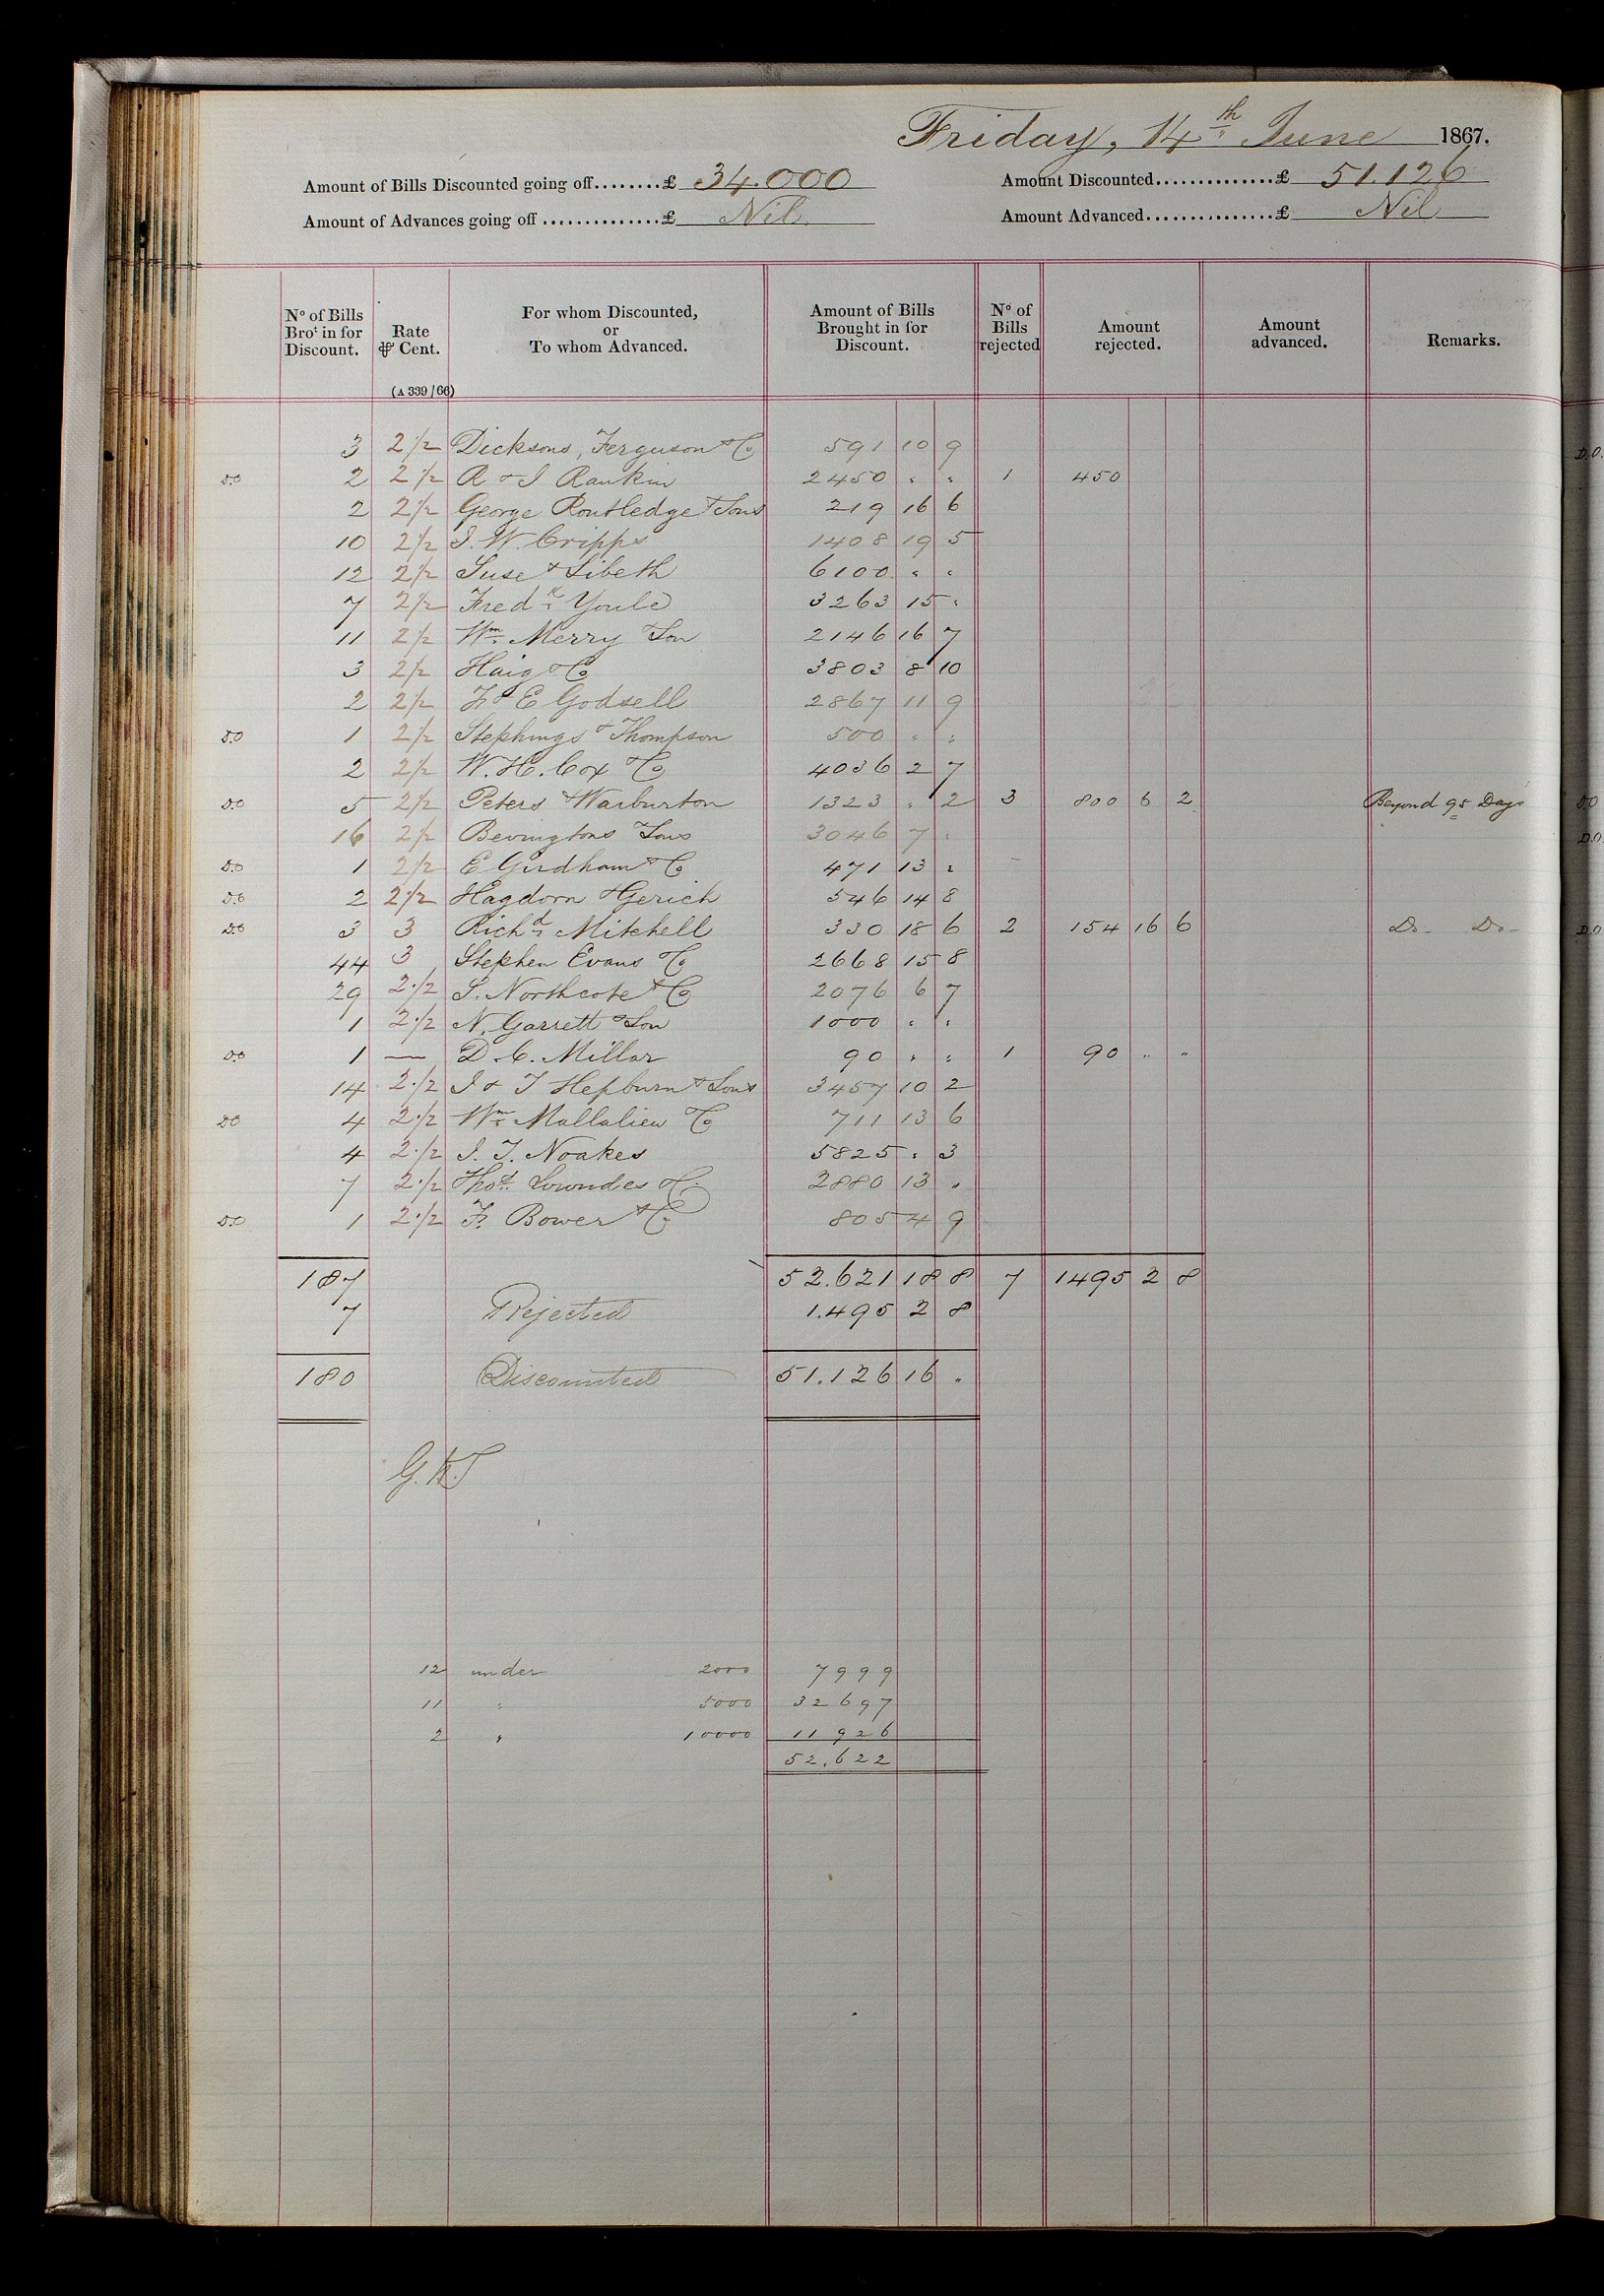 Friday, 14th June 1867.
Amount of Bills Discounted going off........£ 34.000 Amount Discounted..............£ 51.126
Amount of Advances going off ..............£ Nil Amount Advanced...............£ Nil
No of Bills Brot in for Discount. Rate ⅌ Cent. For whom Discounted, or To whom Advanced. Amount of Bills Brought in for Discount. No of Bills rejected Amount rejected. Amount advanced. Remarks.
(A 339/66)
3 2½ Dicksons, Ferguson & Co 591 10 9
D.O 2 2½ R & J Rankin 2450 " " 1 450
2 2½ George Routledge & Sons 219 16 6
10 2½ J. W. Cripps 1408 19 5
12 2½ Suse & Sibeth 6100 " "
7 2½ Fredk Youle 3263 15 "
11 2½ Wm Merry & Son 2146 16 7
3 2½ Haig & Co 3803 8 10
2 2½ F & E Godsell 2867 11 9
D.O 1 2½ Stephings & Thompson 500 " "
2 2½ W. H. Cox & Co 4036 2 7
D.O 5 2½ Peters & Warburton 1323 " 2 3 800 6 2 Beyond 95 Days
16 2½ Bevingtons & Sons 3046 7 "
D.O 1 2½ E Girdham & Co 471 13 "
D.O 2 2½ Hagdorn & Gerich 546 14 8
D.O 3 3 Richd Mitchell 330 18 6 2 154 16 6 Do - Do -
44 3 Stephen Evans & Co 2668 15 8
29 2½ S. Northcote & Co 2076 6 7
1 2½ N. Garrett & Son 1000 " "
D.O 1 — D. C. Millar 90 " " 1 90 " "
14 2½ J & T Hepburn & Sons 3457 10 2
D.O 4 2½ Wm Mallalieu & Co 711 13 6
4 2½ J. T. Noakes 5825 " 3
7 2½ Thos Lowndes & Co 2880 13 "
D.O 1 2½ F. Bower & Co 805 4 9
187 52.621 18 8 7 1495 2 8
7 Rejected 1.495 2 8
180 Discounted 51.126 16 "
12 under 2000 7999
11 " 5000 32697
2 " 10000 11926
52.622